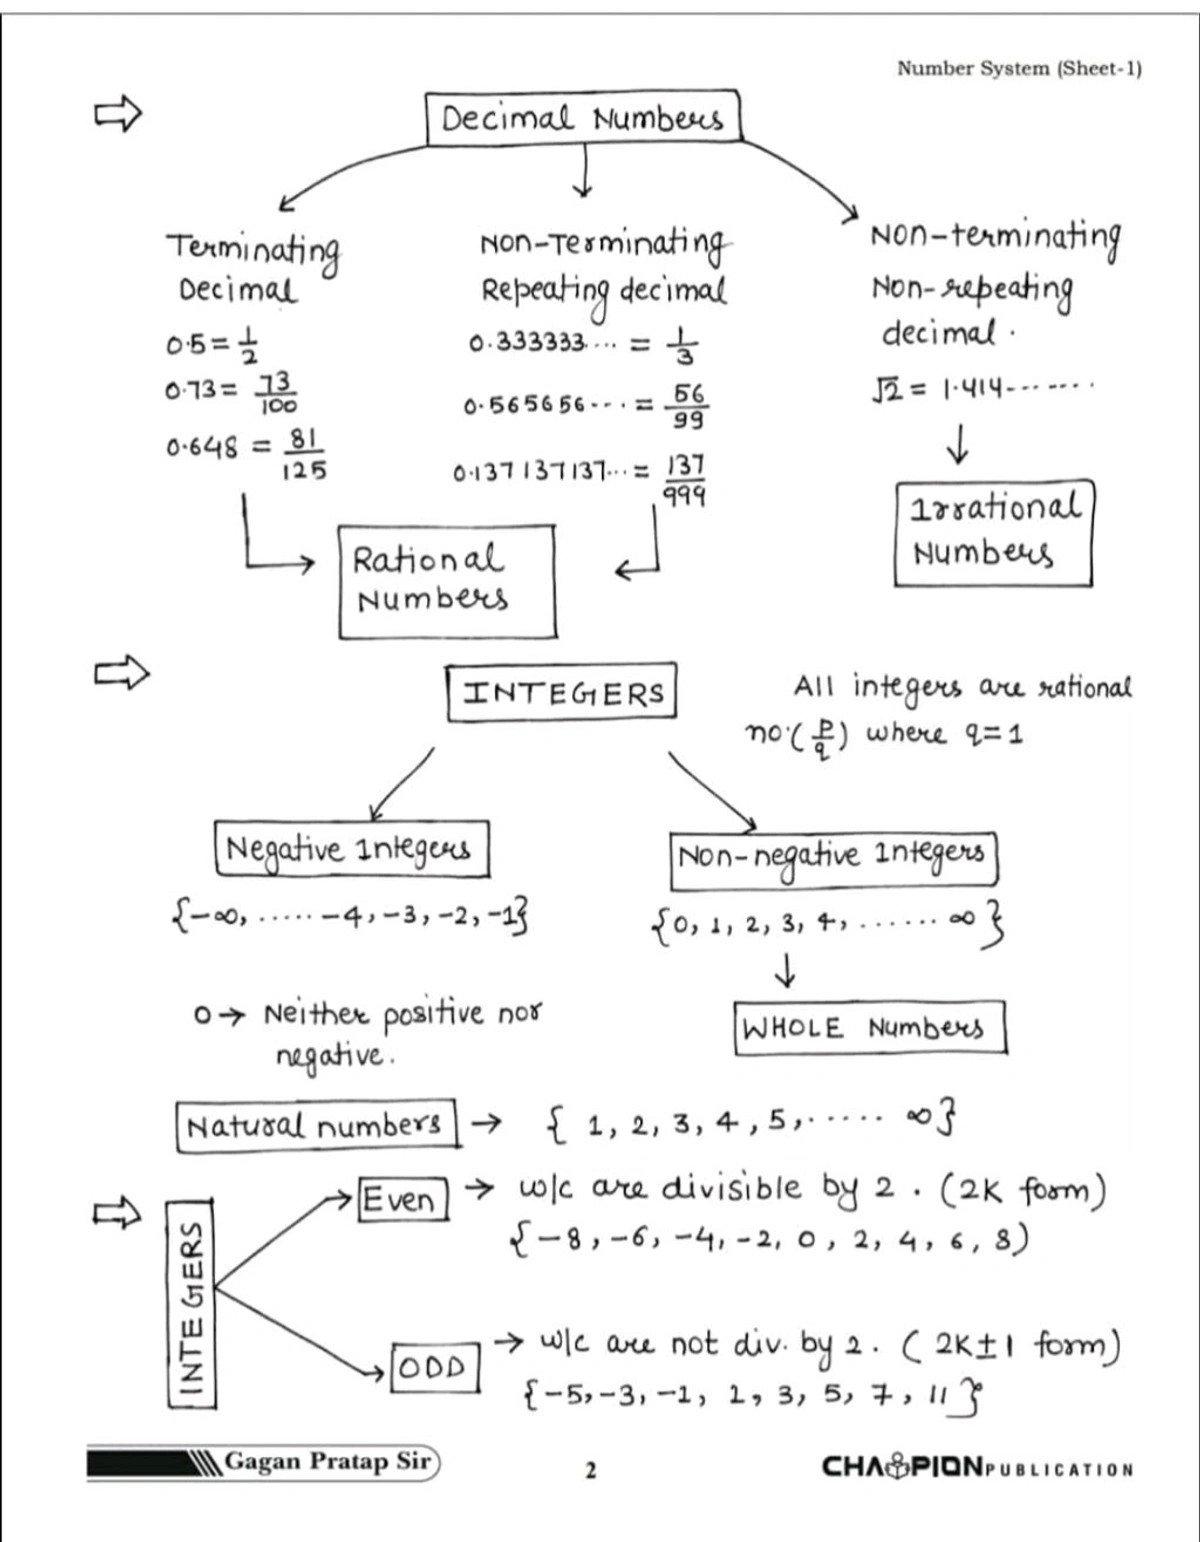 Number System (Sheet-1)
⇨ Decimal Numbers
Terminating Decimal
0.5 = 1/2
0.73 = 73/100
0.648 = 81/125
Non-Terminating Repeating decimal
0.333333... = 1/3
0.565656... = 56/99
0.137137137... = 137/999
Non-terminating
Non-repeating
decimal.
√2 = 1.414-------
Rational
Numbers
Irrational
Numbers
⇨ INTEGERS
All integers are rational
no. (p/q) where q=1
Negative Integers
{-∞, ..... -4, -3, -2, -1}
Non-negative Integers
{0, 1, 2, 3, 4, ....... ∞}
WHOLE Numbers
0 → Neither positive nor
negative.
Natural numbers → { 1, 2, 3, 4, 5, ...... ∞}
⇨ INTEGERS
Even → w/c are divisible by 2. (2K form)
{-8, -6, -4, -2, 0, 2, 4, 6, 8)
ODD → w/c are not div. by 2. ( 2K±1 form)
{-5, -3, -1, 1, 3, 5, 7, 11}
Gagan Pratap Sir
2
CHAMPION PUBLICATION